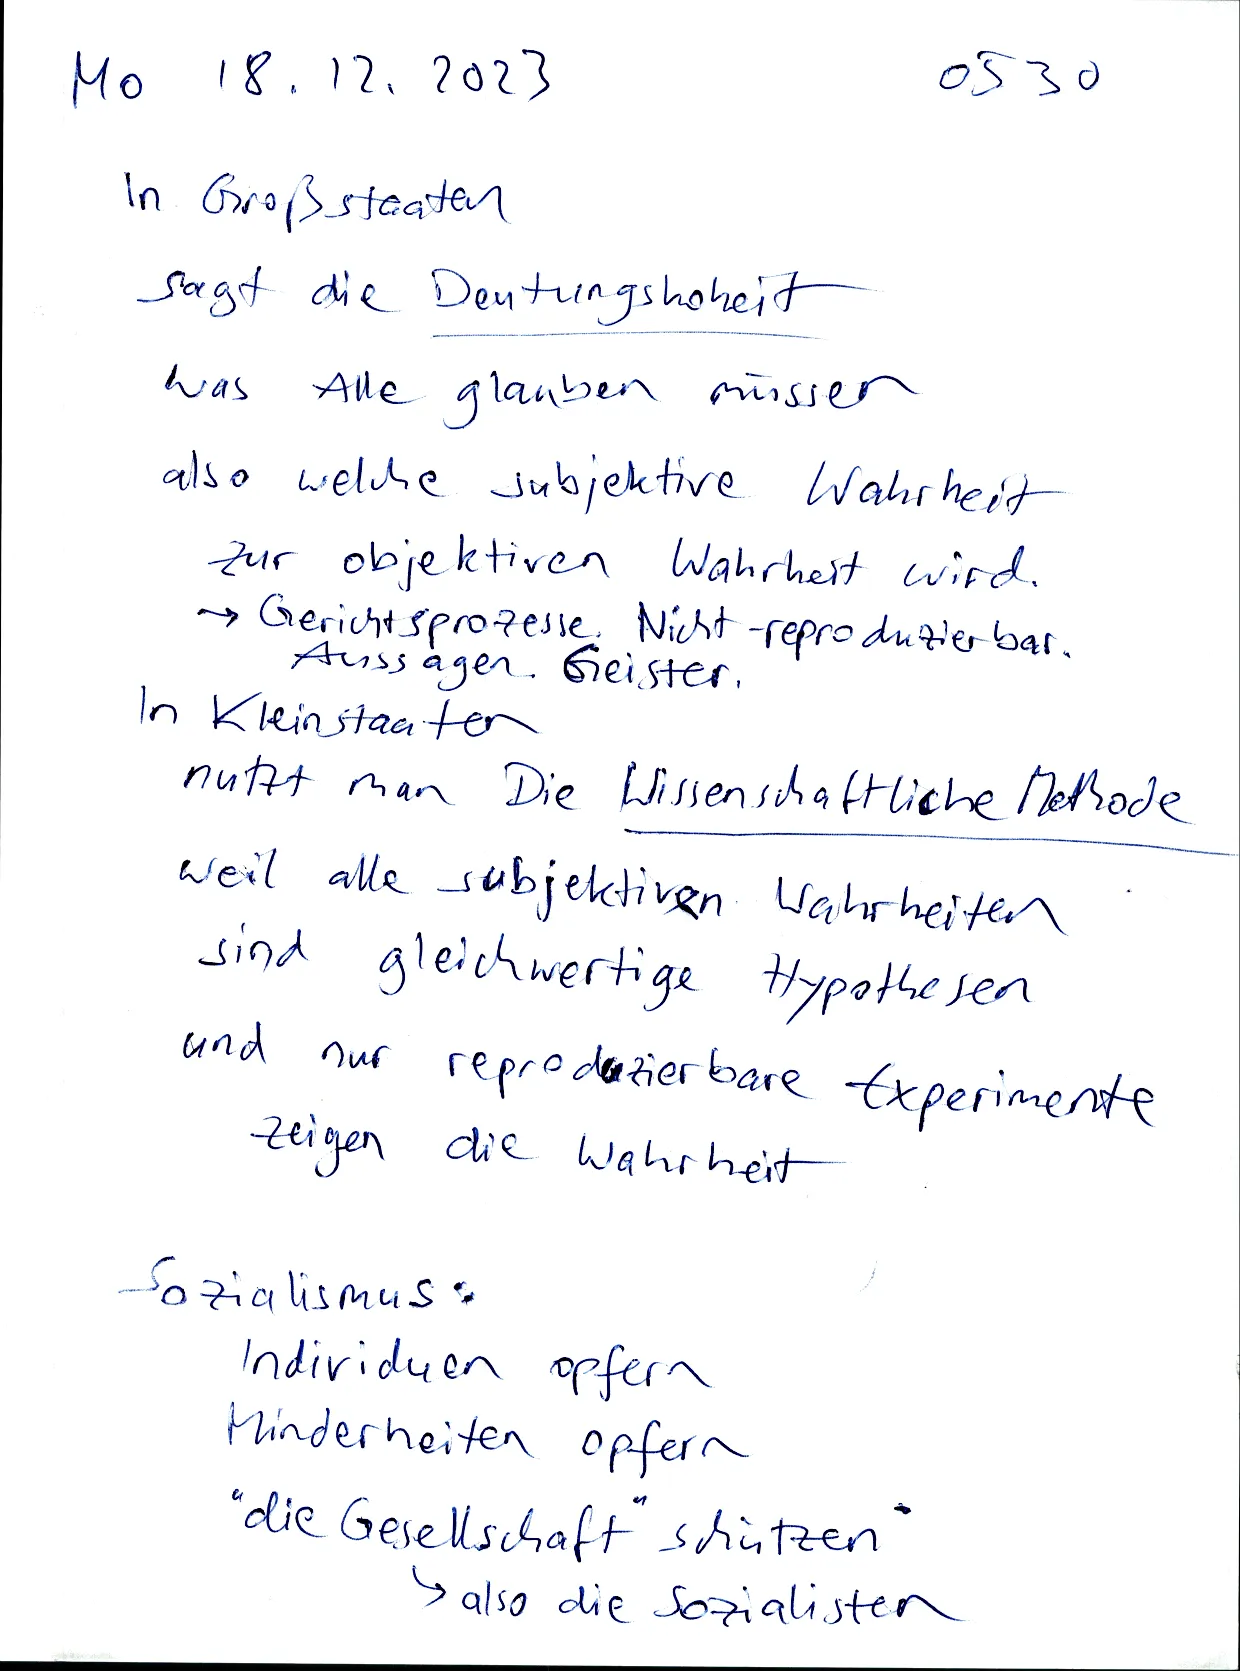 Mo 18.12.2023 0530
In Großstaaten
sagt die Deutungshoheit
was Alle glauben müssen
also welche subjektive Wahrheit
zur objektiven Wahrheit wird.
→ Gerichtsprozesse. Nicht-reproduzierbar.
Aussagen. Geister.
In Kleinstaaten
nutzt man Die Wissenschaftliche Methode
weil alle subjektiven Wahrheiten
sind gleichwertige Hypothesen
und nur reproduzierbare Experimente
zeigen die Wahrheit
Sozialismus:
Individuen opfern
Minderheiten opfern
"die Gesellschaft" schützen"
↳ also die Sozialisten